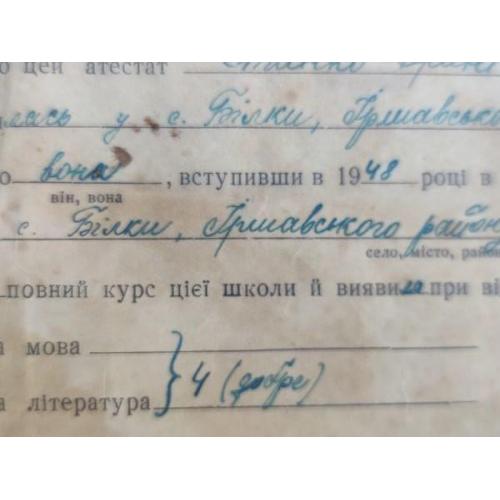 цей атестат
лась у с. Білки, Іршавсько
вона, вступивши в 1948 році в
він, вона
с. Білки, Іршавського район
село, місто, район
повний курс цієї школи й виявила при ві
а мова
а література } 4 (добре)